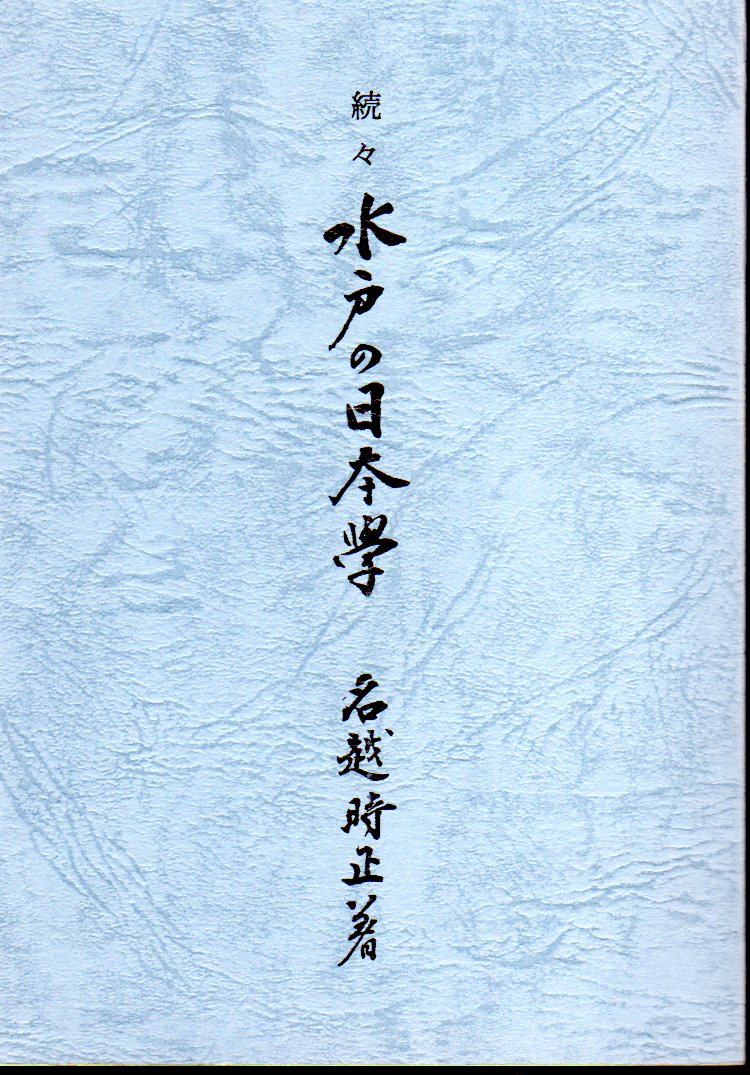 続々 水戸の日本學 名越時正著